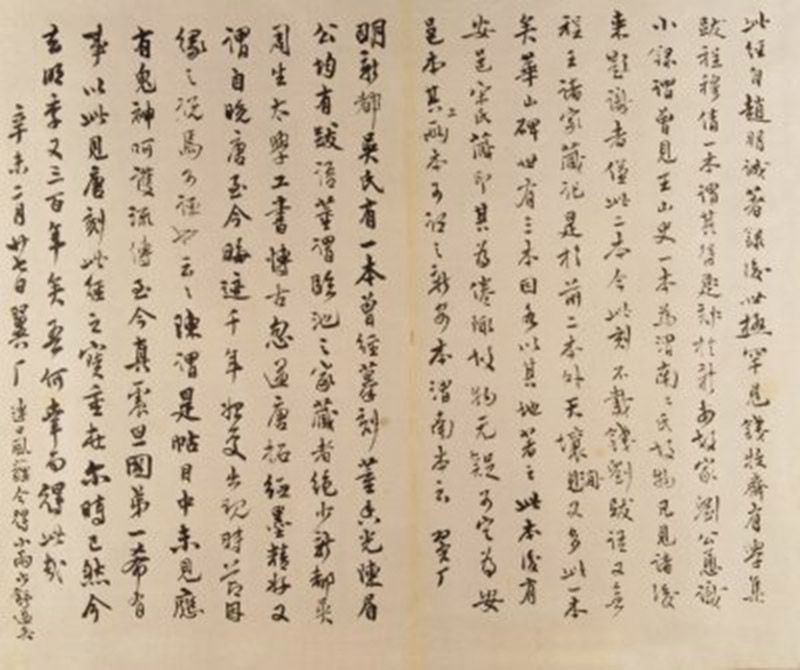 此經自趙明誠著錄後世極罕見錢牧齋有學集
跋程穆倩一本謂其得題跋於新安故家劉公㦷識
小錄謂曾見王山史一本為渭南南氏故物凡見諸後
來題識者僅此二本今此刻不載錢劉跋語又無
程王諸家藏記是於前二本外天壤間又多此一本
矣華山碑世有三本因各以其地著之此本後有
安邑宋氏藏印其為倦陬故物元疑可定為安
邑本其上兩本可詔之新安本渭南本云 翼厂
明新都吳氏有一本曾經摹刻董香光陳眉
公均有跋語董謂臨池之家藏者絕少新都吳
周生太學工書博古忽遘唐拓經墨精好又
謂自晚唐至今晦迹千年始更出現時節因
緣之說焉可誣也云云陳謂是帖目中未見應
有鬼神呵護流傳至今真震旦國第一希有
事以此見唐刻此經之寶重在爾時已然今
去明季又三百年矣吾何幸而得此哉
辛未二月廿七日翼厂 連日風霾今得小雨少舒